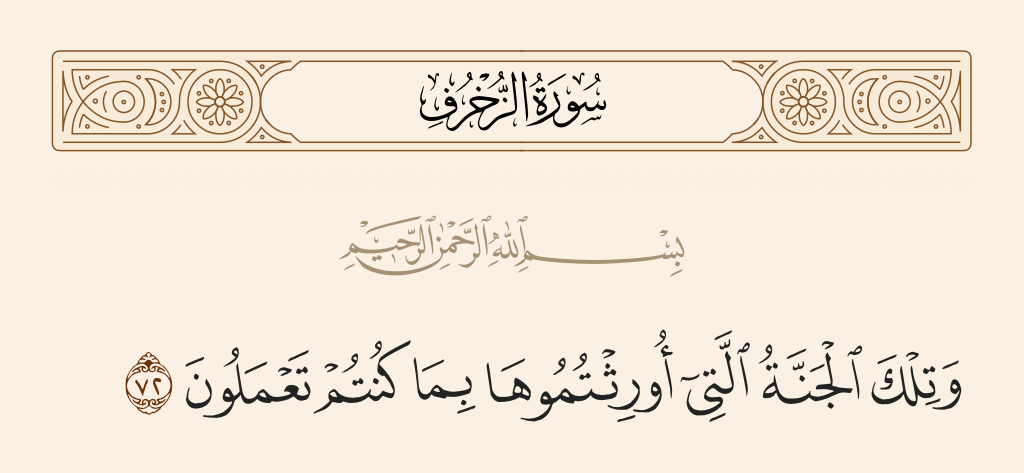 سُورَةُ الزُّخْرُفِ
بِسْمِ ٱللَّهِ ٱلرَّحْمَٰنِ ٱلرَّحِيمِ
وَتِلْكَ ٱلْجَنَّةُ ٱلَّتِىٓ أُورِثْتُمُوهَا بِمَا كُنتُمْ تَعْمَلُونَ ٧٢